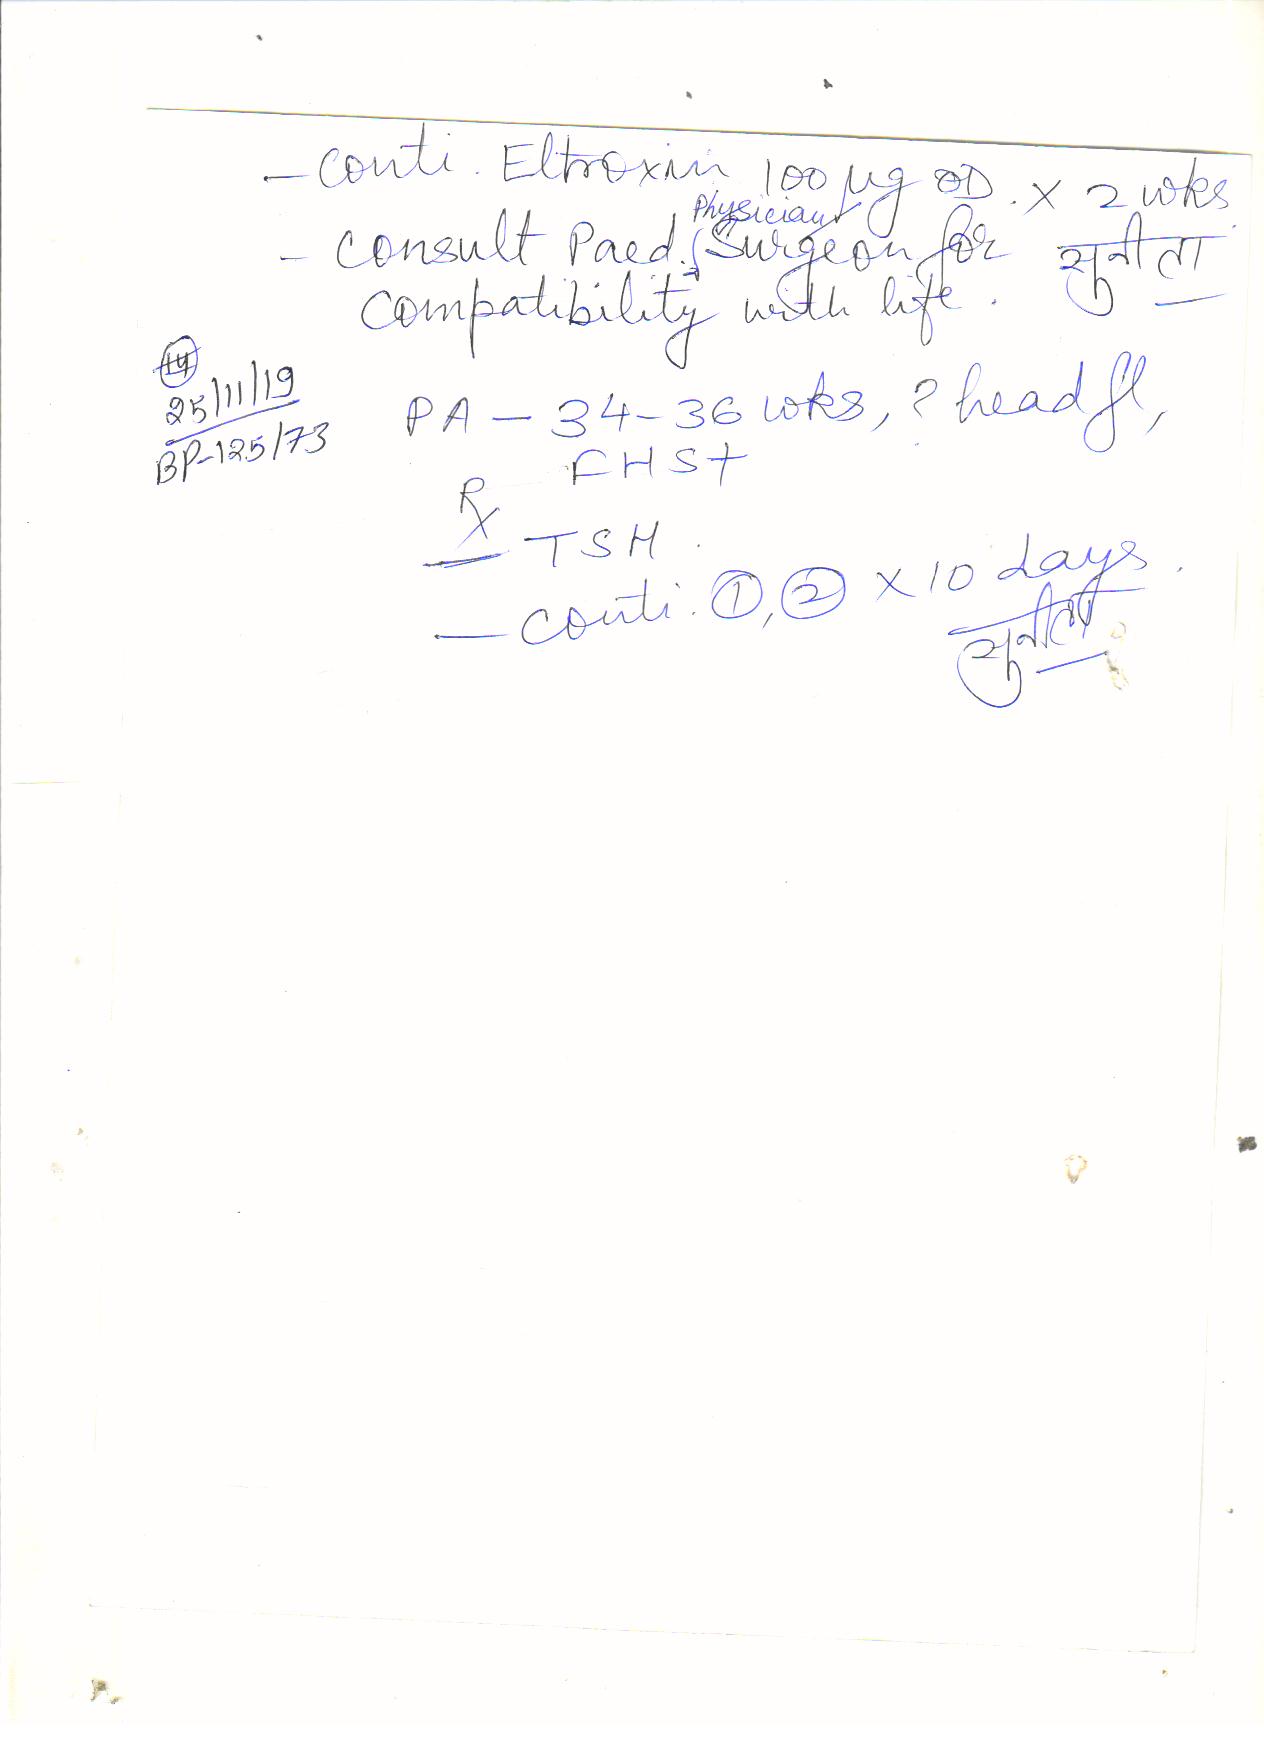 - conti. Eltroxin 100 μg OD. x 2 wks
- consult Paed. Physician / Surgeon for सुनीता
compatibility with life.
14
25/11/19
BP-125/73
PA - 34-36 wks, ? head fl,
FHS+
Rx
- TSH.
- conti. ①, ② x 10 days.
सुनीता